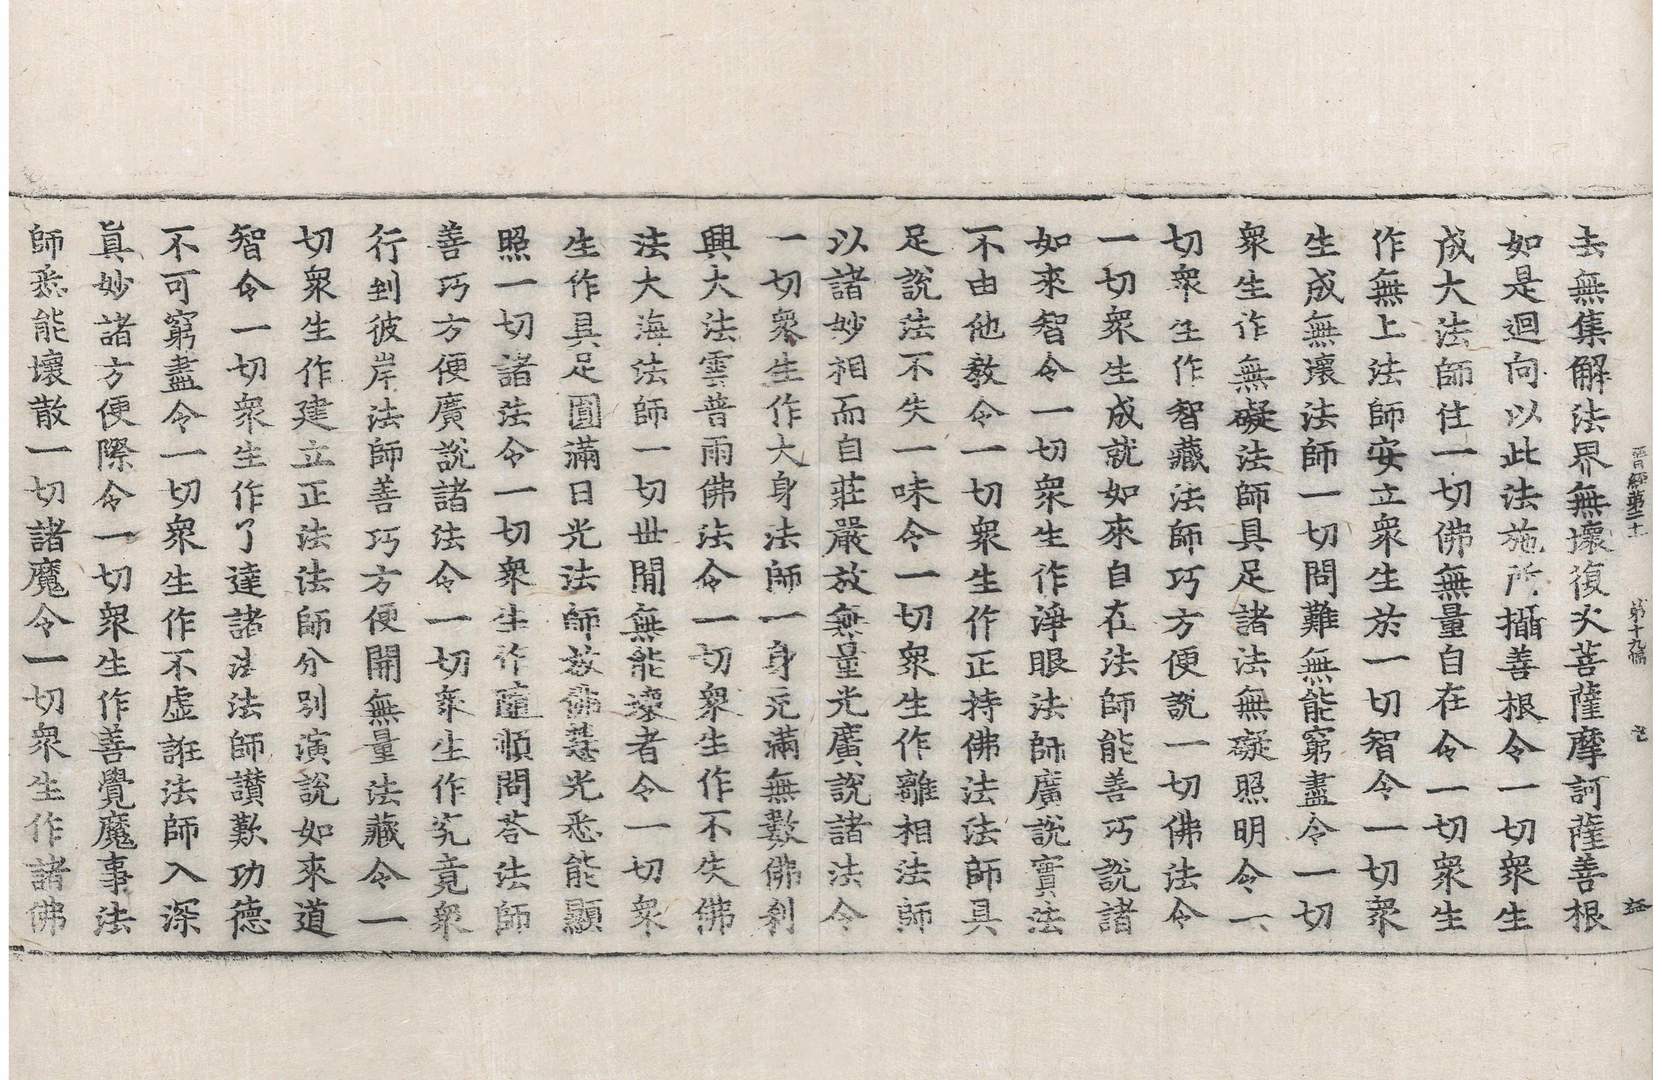 晉經第二十 第十九幅
去無集解法界無壞復次菩薩摩訶薩善根
如是迴向以此法施所攝善根令一切衆生
成大法師住一切佛無量自在令一切衆生
作無上法師安立衆生於一切智令一切衆
生成無壞法師一切問難無能窮盡令一切
衆生作無礙法師具足諸法無礙照明令一
切衆生作智藏法師巧方便說一切佛法令
一切衆生成就如來自在法師能善巧說諸
如來智令一切衆生作淨眼法師廣說實法
不由他教令一切衆生作正持佛法法師具
足說法不失一味令一切衆生作離相法師
以諸妙相而自莊嚴放無量光廣說諸法令
一切衆生作大身法師一身充滿無數佛刹
興大法雲普雨佛法令一切衆生作不失佛
法大海法師一切世間無能壞者令一切衆
生作具足圓滿日光法師放佛慧光悉能顯
照一切諸法令一切衆生作隨順問荅法師
善巧方便廣說諸法令一切衆生作究竟衆
行到彼岸法師善巧方便開無量法藏令一
切衆生作建立正法法師分別演說如來道
智令一切衆生作了達諸法法師讃歎功德
不可窮盡令一切衆生作不虛誑法師入深
眞妙諸方便際令一切衆生作善覺魔事法
師悉能壞散一切諸魔令一切衆生作諸佛